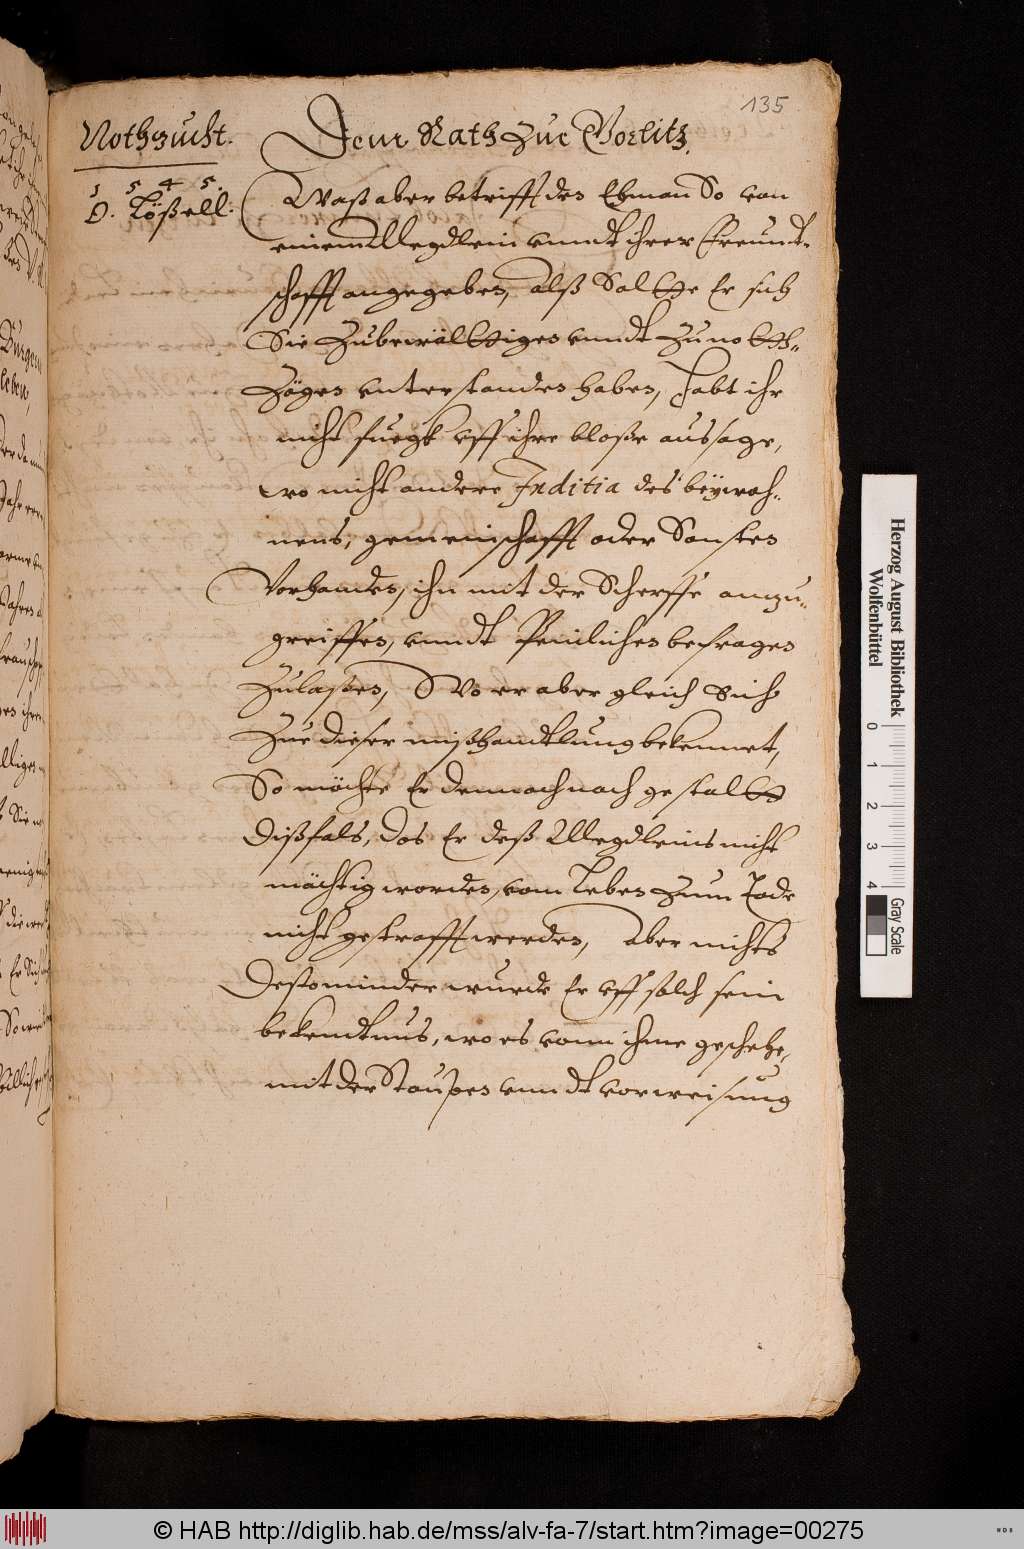 135
Nothzucht.
1 5 4 5.
D. Lößell:
Dem Rath zue Görlitz.
Waß aber betrifft den Ehman So von
einem Megdlein vnndt ihrer Freundt-
schafft angegeben, alß Solte Er sich
Sie Zubewältigen vnndt Zu noth-
Zögen vnterstanden haben, Habt ihr
nicht fuegk vff ihre bloße aussage,
wo nicht andere Inditia des beÿwoh-
nens, gemeinschafft oder Sonsten
Vorhanden, ihn mit der Scherffe anzu-
greiffen, vnndt Peinlichen befragen
Zulaßen, Wo er aber gleich Sich
Zue dieser mißhandtlung bekennet,
So möchte Er dennoch nach gestalt
dißfals, das Er deß Megdleins nicht
mächtig worden, vom Leben zum Tode
nicht gestrafft werden, aber nichts
destominder wurde Er vff solch sein
bekendtnus, wo es vonn ihme geschehe,
mit der Staupen vnndt vorweisung
Herzog August Bibliothek
Wolfenbüttel
0 1 2 3 4
Gray Scale
© HAB http://diglib.hab.de/mss/alv-fa-7/start.htm?image=00275